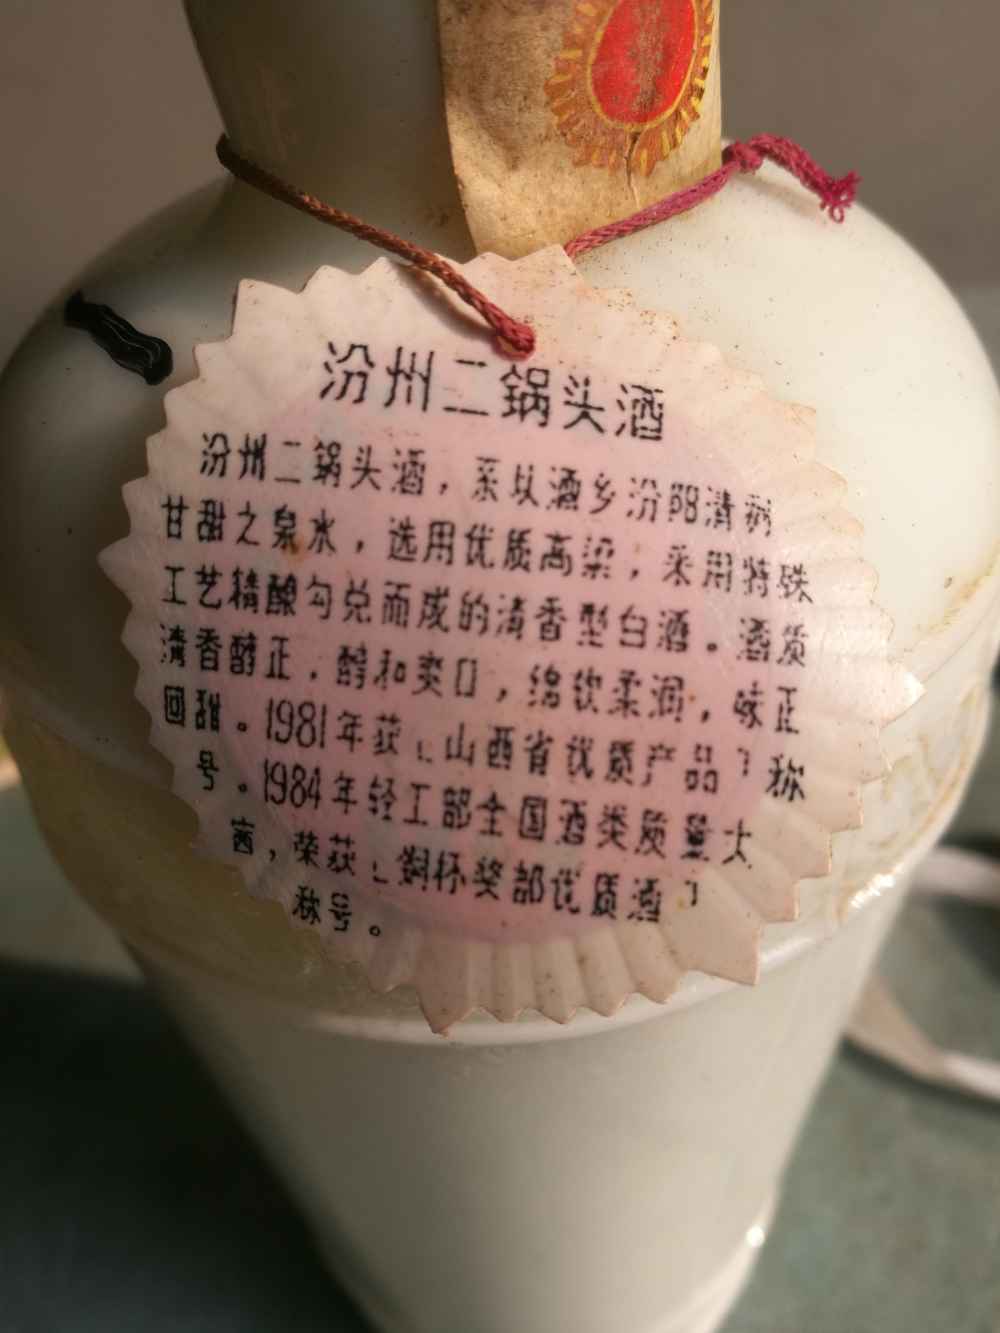 汾州二锅头酒
汾州二锅头酒，系以酒乡汾阳清冽
甘甜之泉水，选用优质高粱，采用特殊
工艺精酿勾兑而成的清香型白酒。酒质
清香醇正，醇和爽口，绵软柔润，味正
回甜。1981年获﹝山西省优质产品﹞称
号。1984年轻工部全国酒类质量大
赛，荣获﹝铜杯奖部优质酒﹞
称号。